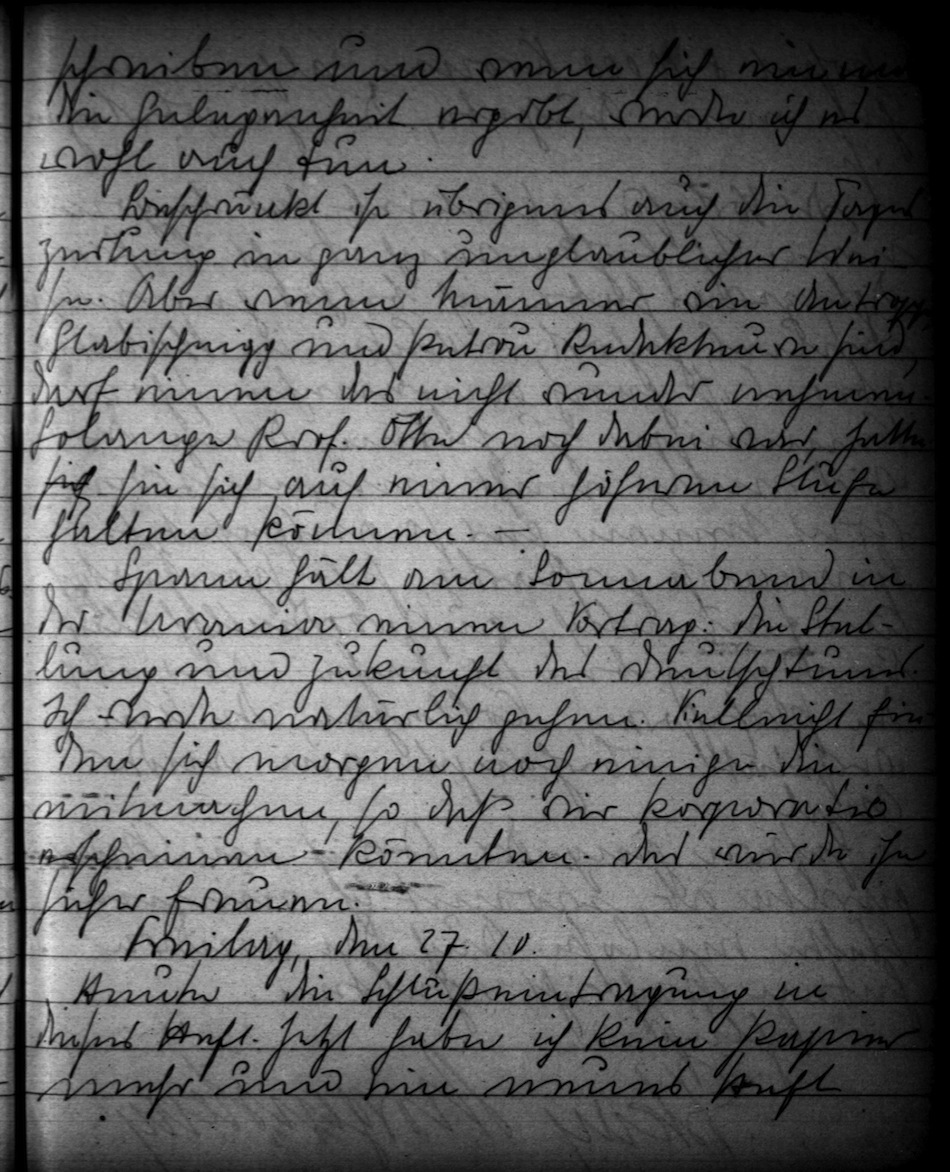 schreiben und wenn sich einmal
die Gelegenheit ergibt, werde ich es
wohl auch tun.
Beschränkt ist übrigens auch die Tages-
zeitung in ganz unglaublicher Wei-
se. Aber wenn Männer wie
und Redakteure sind,
darf einen das nicht wunder nehmen.
Solange Prof. Otte noch dabei war, hatte
sie sich auf einer höheren Stufe
halten können. —
Spann hält am Sonnabend in
der Urania einen Vortrag: die Stel-
lung und Zukunft des Deutschtums.
Ich werde natürlich gehen. Vielleicht fin-
den sich morgen noch einige die
mitmachen, so daß wir korporativ
erscheinen könnten. Das würde ihn
sicher freuen.
Freitag, den 27. 10.
Heute die Schlußeintragung in
dieses Heft. Jetzt habe ich kein Papier
mehr und ein neues Heft